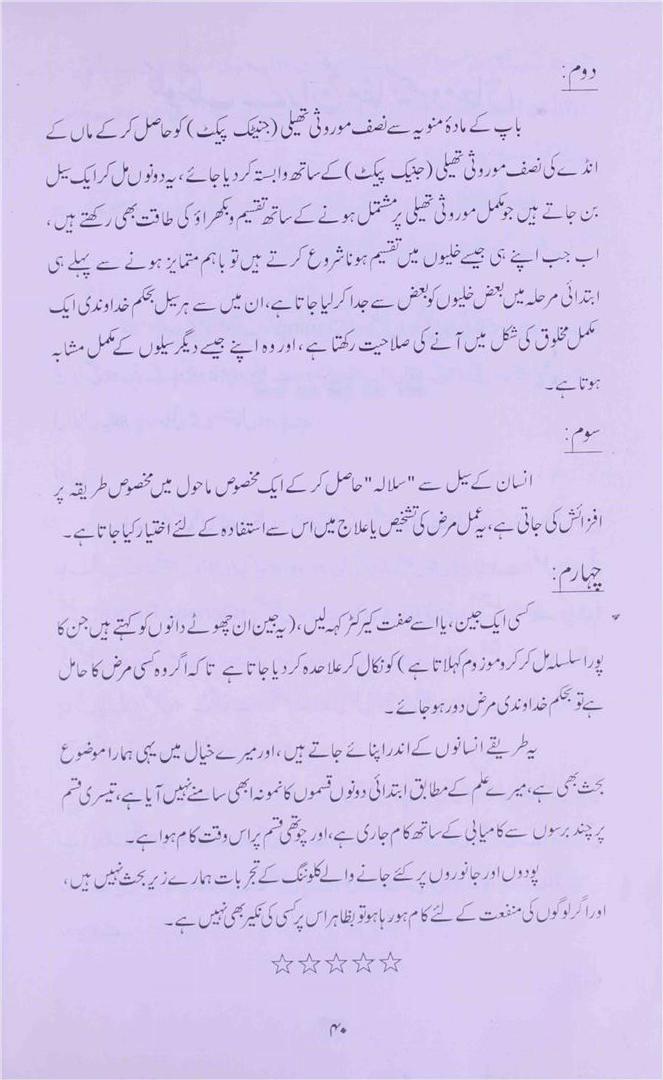 دوم:
باپ کے مادۂ منویہ سے نصف موروثی تھیلی (جنیٹک پیکٹ) کو حاصل کر کے ماں کے
انڈے کی نصف موروثی تھیلی (جنیٹک پیکٹ) کے ساتھ وابستہ کر دیا جائے، یہ دونوں مل کر ایک سیل
بن جاتے ہیں جو مکمل موروثی تھیلی پر مشتمل ہونے کے ساتھ تقسیم و بکھراؤ کی طاقت بھی رکھتے ہیں،
اب جب اپنے ہی جیسے خلیوں میں تقسیم ہونا شروع کرتے ہیں تو باہم متمایز ہونے سے پہلے ہی
ابتدائی مرحلہ میں بعض خلیوں کو بعض سے جدا کر لیا جاتا ہے، ان میں سے ہر سیل بحکم خداوندی ایک
مکمل مخلوق کی شکل میں آنے کی صلاحیت رکھتا ہے، اور وہ اپنے جیسے دیگر سیلوں کے مکمل مشابہ
ہوتا ہے۔
سوم:
انسان کے سیل سے "سلالہ" حاصل کر کے ایک مخصوص ماحول میں مخصوص طریقہ پر
افزائش کی جاتی ہے، یہ عمل مرض کی تشخیص یا علاج میں اس سے استفادہ کے لئے اختیار کیا جاتا ہے۔
چہارم:
کسی ایک جین، یا اسے صفت کیرکٹر کہہ لیں، (یہ جین ان چھوٹے دانوں کو کہتے ہیں جن کا
پورا سلسلہ مل کر کروموزوم کہلاتا ہے) کو نکال کر علاحدہ کر دیا جاتا ہے تاکہ اگر وہ کسی مرض کا حامل
ہے تو بحکم خداوندی مرض دور ہو جائے۔
یہ طریقے انسانوں کے اندر اپنائے جاتے ہیں، اور میرے خیال میں یہی ہمارا موضوع
بحث بھی ہے، میرے علم کے مطابق ابتدائی دونوں قسموں کا نمونہ ابھی سامنے نہیں آیا ہے، تیسری قسم
پر چند برسوں سے کامیابی کے ساتھ کام جاری ہے، اور چوتھی قسم پر اس وقت کام ہوا ہے۔
پودوں اور جانوروں پر کئے جانے والے کلوننگ کے تجربات ہمارے زیر بحث نہیں ہیں،
اور اگر لوگوں کی منفعت کے لئے کام ہو رہا ہو تو بظاہر اس پر کسی کی نکیر بھی نہیں ہے۔
☆☆☆☆☆
۴۰